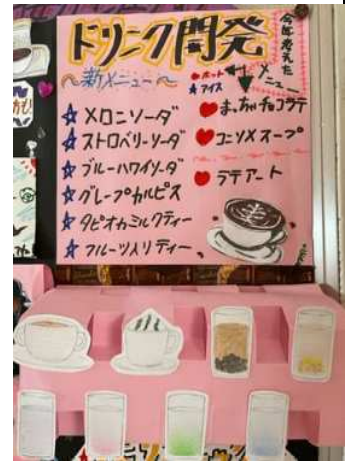 ドリンク開発
今年考えた
メニュー
〜新メニュー〜
●ホット
★アイス
☆メロンソーダ
☆ストロベリーソーダ
☆ブルーハワイソーダ
☆グレープカルピス
☆タピオカミルクティー
☆フルーツ入りティー
♥まっちゃチョコラテ
♥コンソメスープ
♥ラテアート